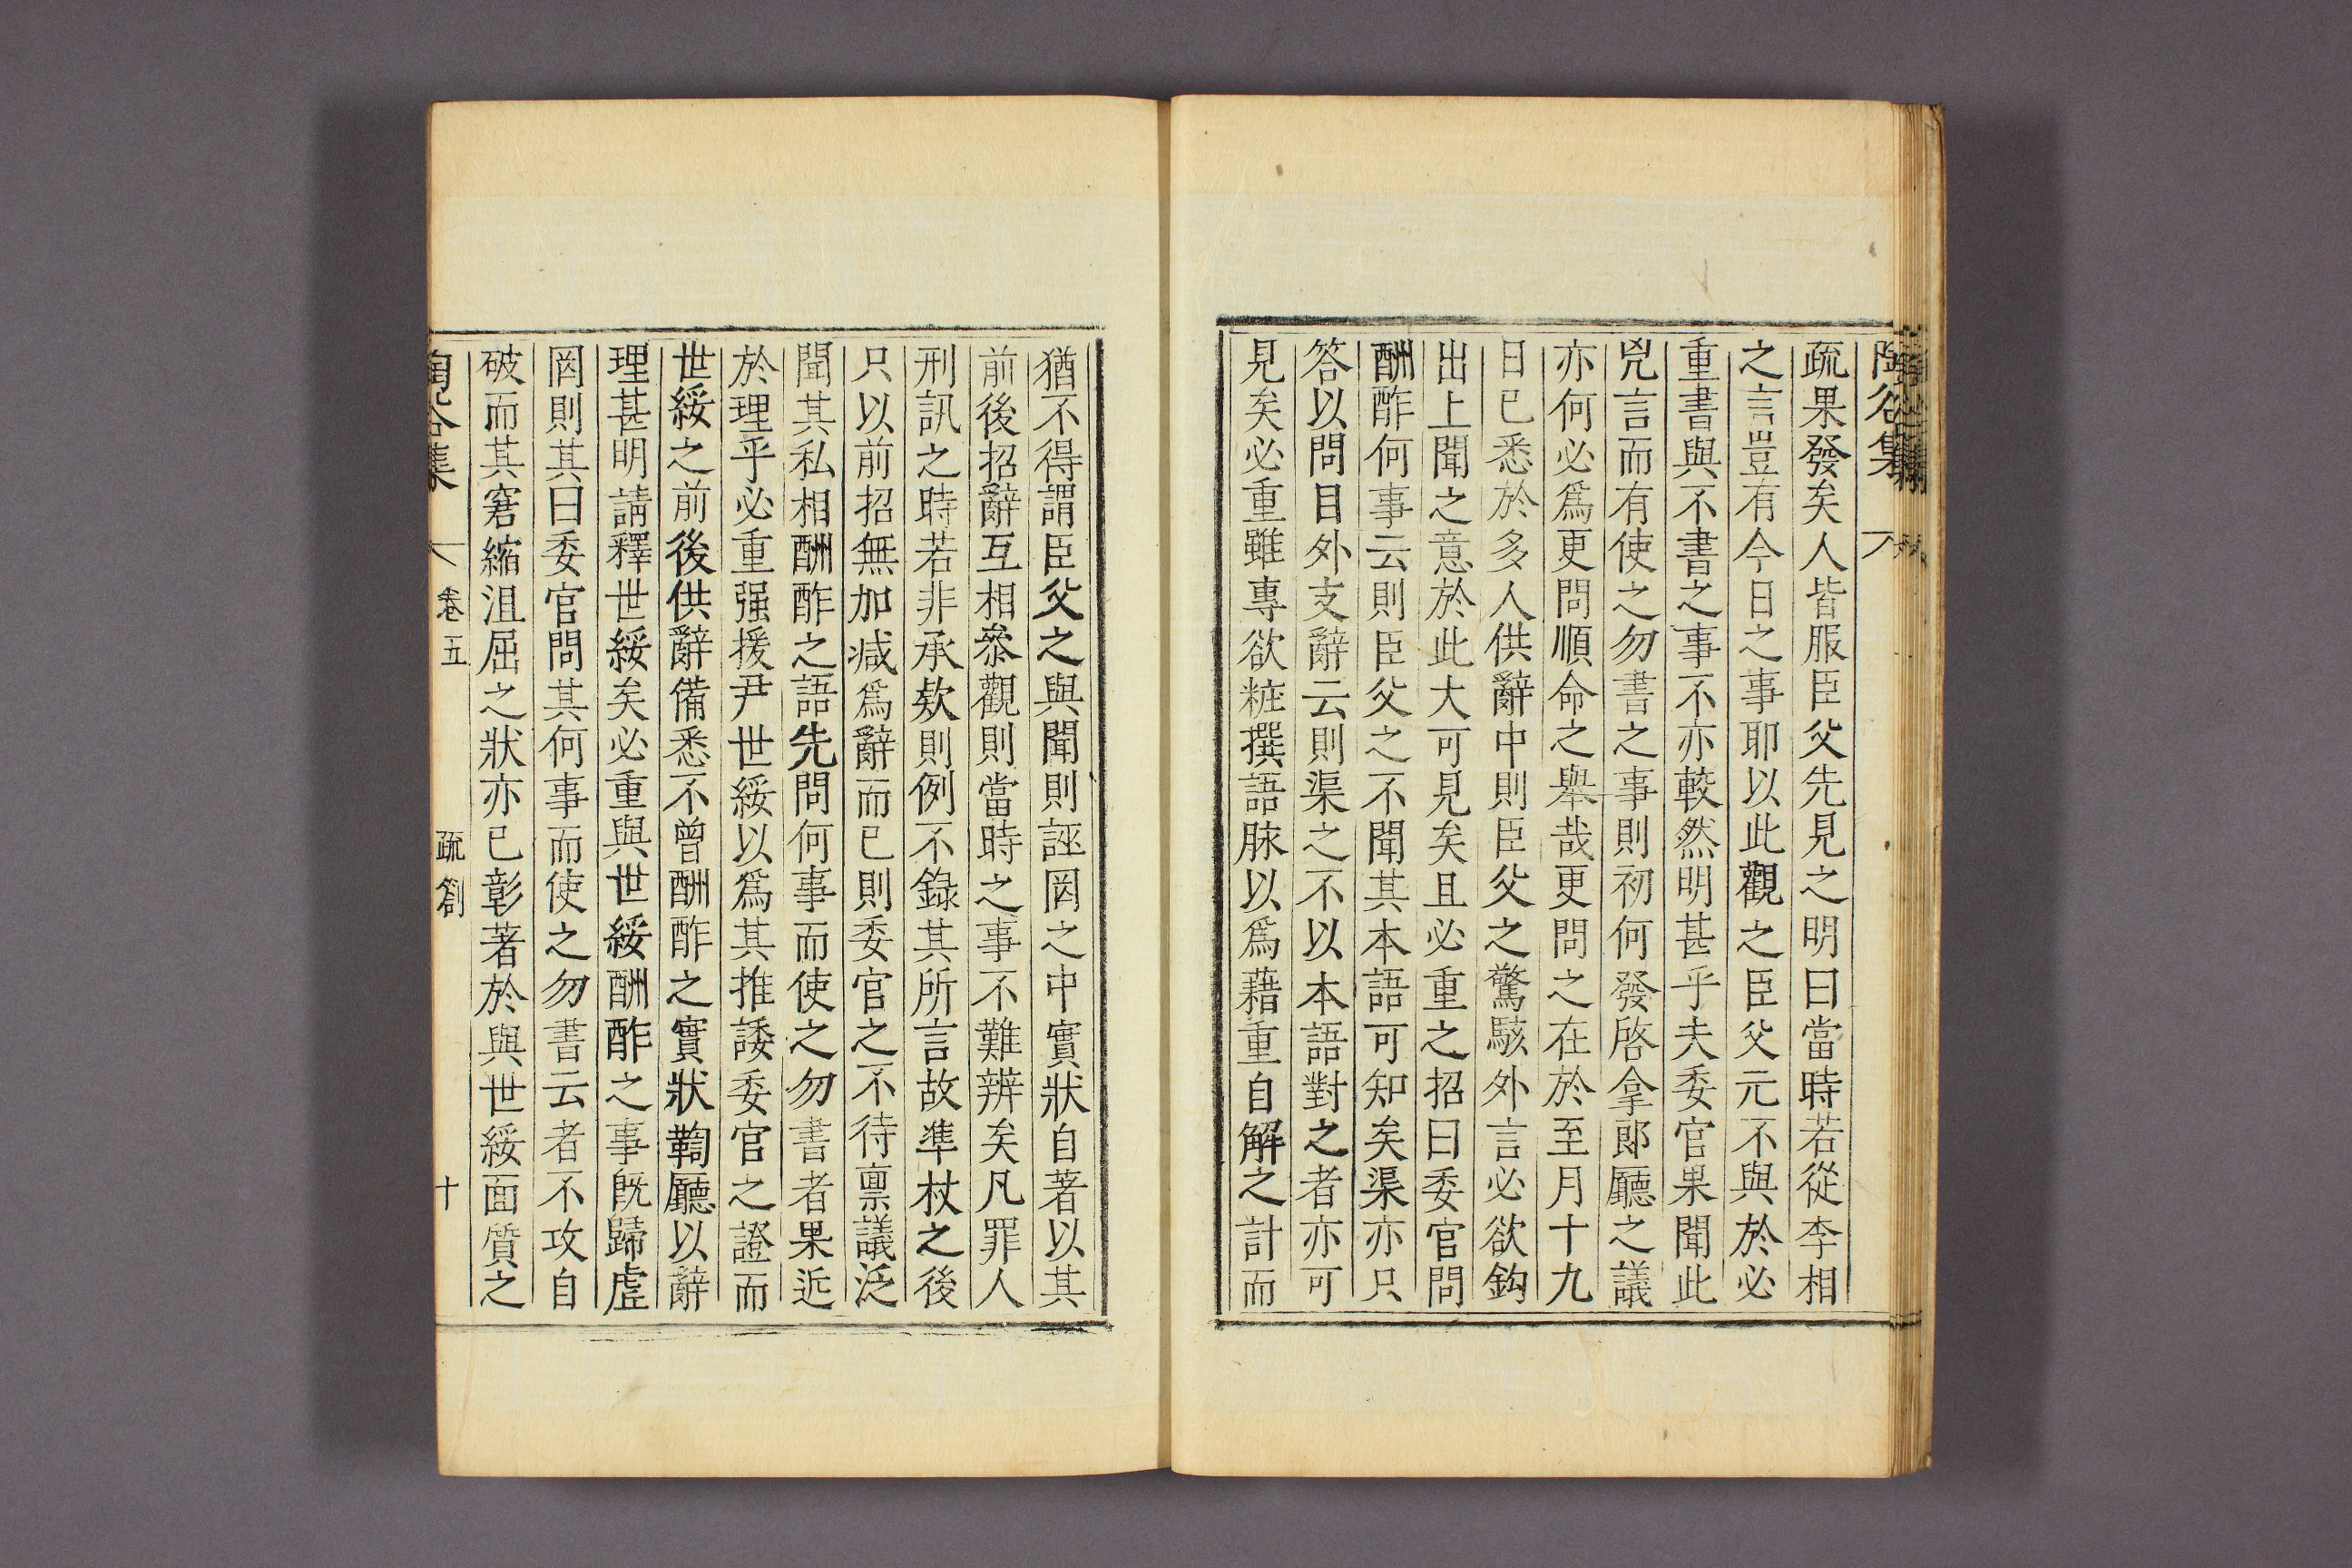 疏果發矣人皆服臣父先見之明曰當時若從李相
之言豈有今日之事耶以此觀之臣父元不與於必
重書與不書之事不亦較然明甚乎夫委官果聞此
兇言而有使之勿書之事則初何發啓拿郞廳之議
亦何必爲更問順命之舉哉更問之在於至月十九
日已悉於多人供辭中則臣父之驚駭外言必欲鈎
出上聞之意於此大可見矣且必重之招曰委官問
酬酢何事云則臣父之不聞其本語可知矣渠亦只
答以問目外支辭云則渠之不以本語對之者亦可
見矣必重雖專欲粧撰語脉以爲藉重自解之計而
猶不得謂臣父之與聞則誣罔之中實狀自著以其
前後招辭互相叅觀則當時之事不難辨矣凡罪人
刑訊之時若非承欵則例不錄其所言故準杖之後
只以前招無加减爲辭而已則委官之不待稟議泛
聞其私相酬酢之語先問何事而使之勿書者果近
於理乎必重强援尹世綏以爲其推諉委官之證而
世綏之前後供辭備悉不曾酬酢之實狀鞫廳以辭
理甚明請釋世綏矣必重與世綏酬酢之事旣歸虛
罔則其曰委官問其何事而使之勿書云者不攻自
破而其窘縮沮屈之狀亦已彰著於與世綏面質之
陶谷集 卷五 疏箚 十